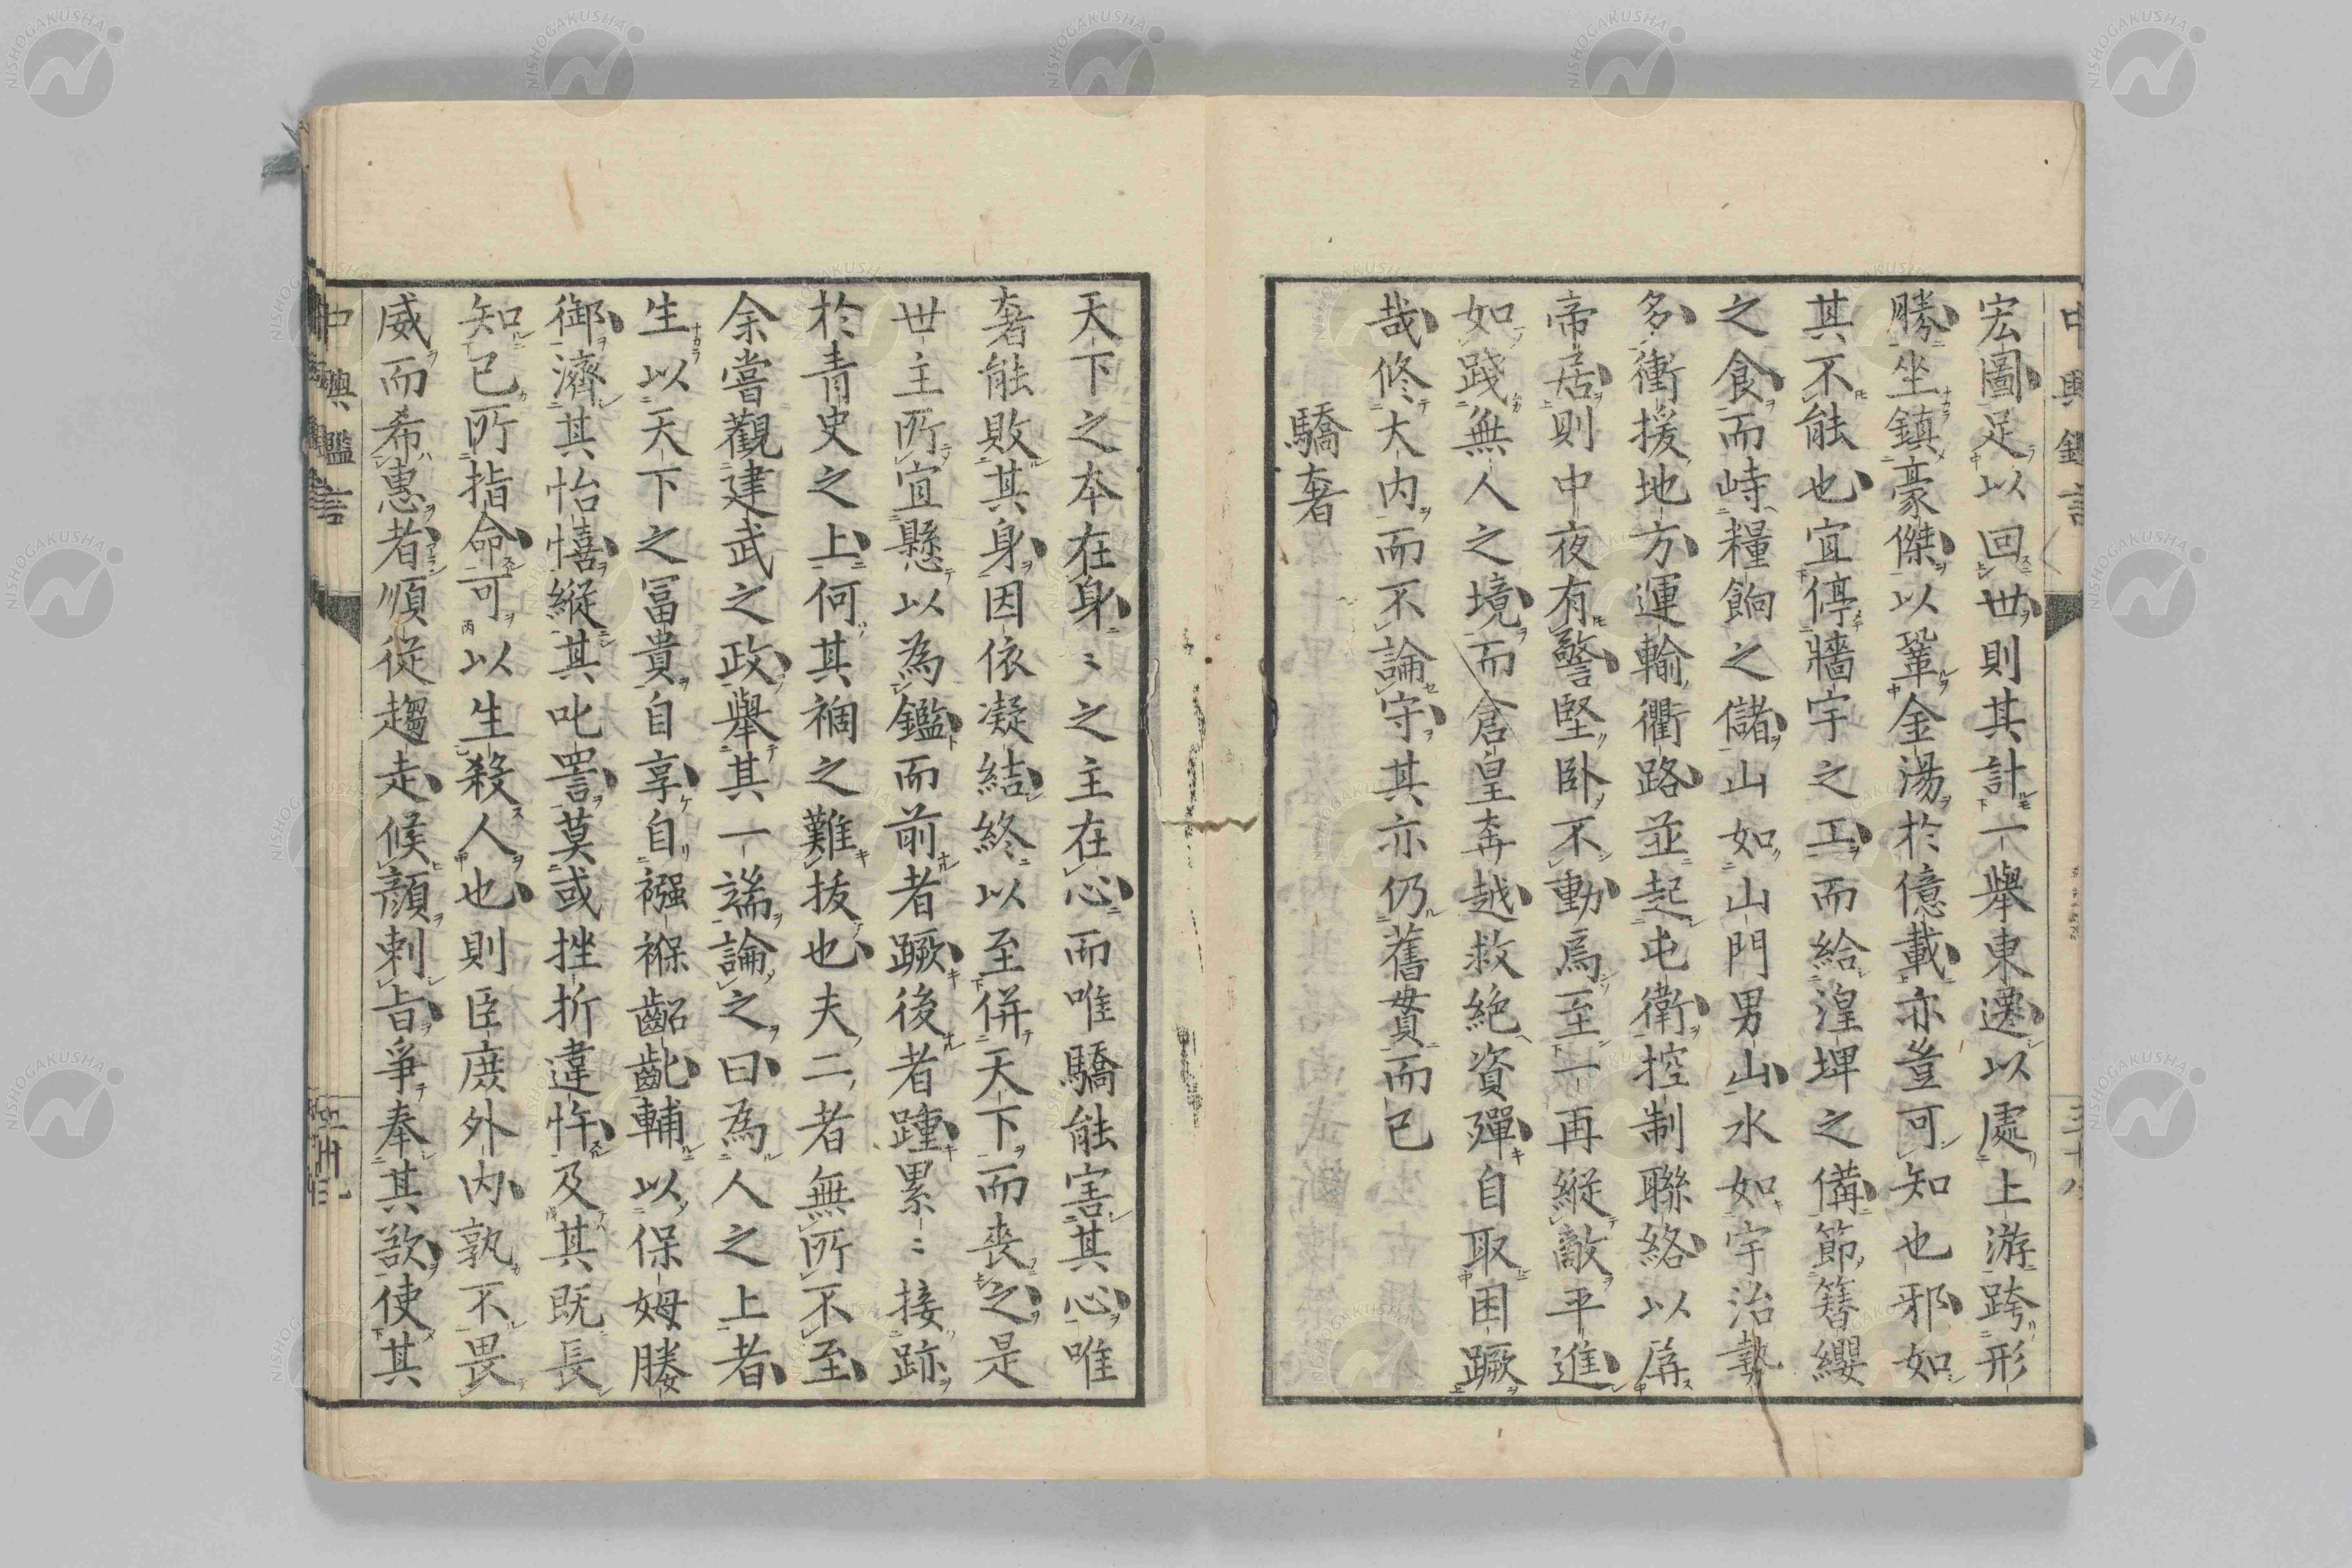 宏圖足以回世則其計一舉東遷以處上游跨形
勝坐鎮豪傑以鞏金湯於億載亦豈可知也邪如
其不能也宜停牆宇之工而給湟埤之備節簪纓
之食而峙糧餉之儲山如山門男山水如宇治勢
多衝援地方運輸衢路並起屯衛控制聯絡以孱
帝居則中夜有警堅卧不動焉至一再縱敵平進
如踐無人之境而倉皇奔越救絶資彈自取困蹶
哉修大内而不論守其亦仍舊貫而已
驕奢
天下之本在身〻之主在心而唯驕能害其心唯
奢能敗其身因依凝結終以至併天下而喪之是
世主所宜懸以為鑑而前者蹶後者踵累〻接跡
於青史之上何其禍之難拔也夫二者無所不至
余嘗觀建武之政舉其一端論之曰為人之上者
生以天下之冨貴自享自襁褓齠齔輔以保姆媵
御濟其怡憘縱其叱詈莫或挫折違忤及其既長
知己所指命可以生殺人也則臣庶外内孰不畏
威而希惠者順從趨走候顔刺旨爭奉其欲使其
中興鑑言
三十八
中興鑑言
NISHOGAKUSHA